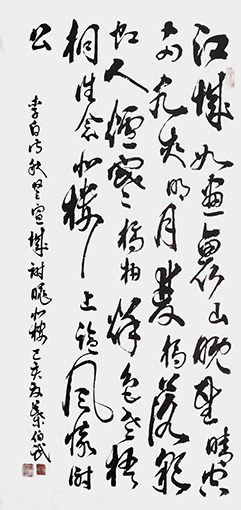 江城如畫裏山晚望晴空
兩水夾明月雙橋落彩
虹人煙寒橘柚秋色老梧
桐誰念北樓上臨風懷謝
公
李白詩秋登宣城謝朓北樓己亥夏葉伯武